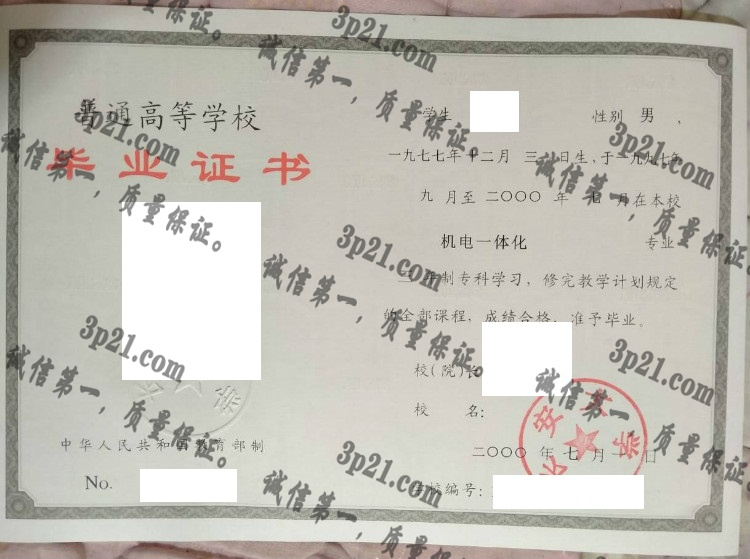 普通高等学校
毕业证书
中华人民共和国教育部制
No.
学生 性别 男 ,
一九七七年十二月 三 日生,于一九九七年
九 月至 二〇〇〇 年 七 月在本校
机电一体化 专业
三 年制专科学习,修完教学计划规定
的全部课程,成绩合格,准予毕业。
校(院)长
校 名:
二〇〇〇 年 七 月 日
学校编号:
3p21.com
诚信第一,质量保证。
3p21.com
诚信第一,质量保证。
3p21.com
诚信第一,质量保证。
3p21.com
诚信第一,质量保证。
3p21.com
诚信第一,质量保证。
3p21.com
诚信第一,质量保证。
3p21.com
诚信第一,质量保证。